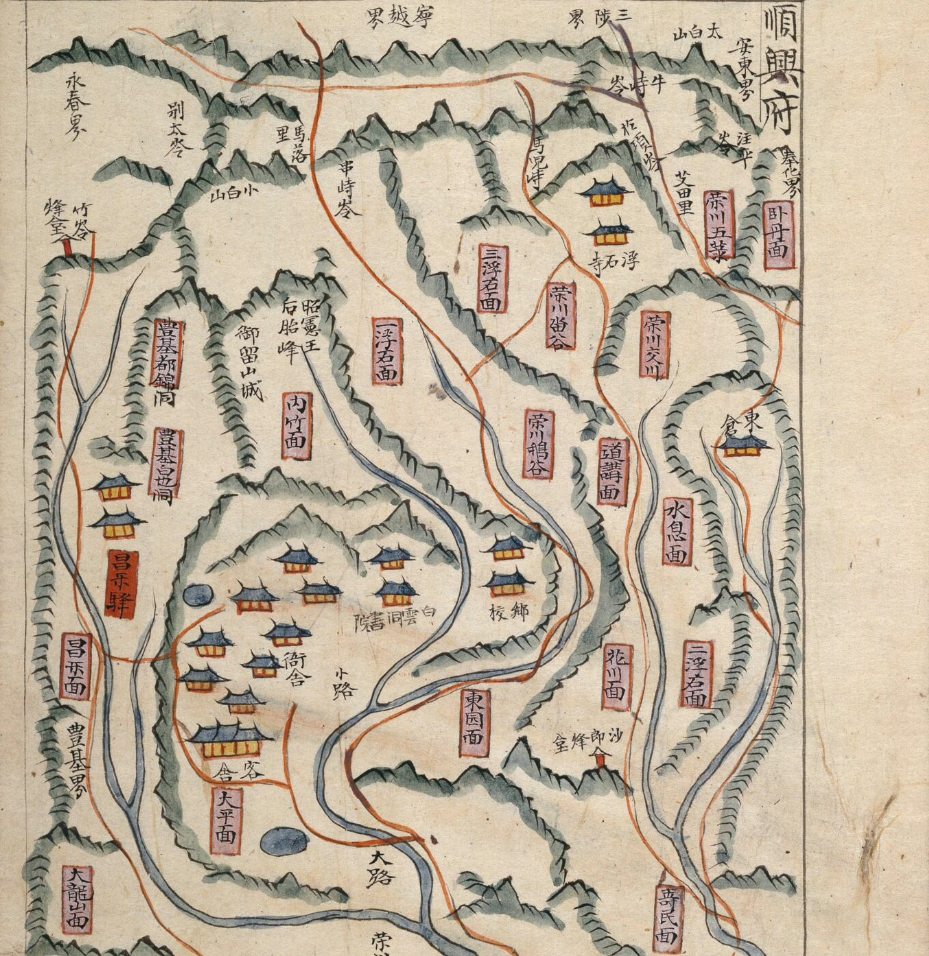 順興府
安東界
太白山
三陟界
寧越界
牛峙岺
奉化界
臥丹面
榮川五菉
艾田里
馬兒峙
浮石寺
馬落里
串峙岺
小白山
別太岺
永春界
竹岺
烽䑓
三浮石面
榮川
榮川
一浮石面
昭憲王后胎峰
御留山城
內竹面
豊基都錦洞
豊基白也洞
榮川鵠谷
道講面
水息面
東倉
二浮石面
花川面
鄕校
白雲洞書院
衙舍
客舍
小路
東园面
大平面
昌樂驛
昌樂面
豊基界
大龍山面
沙郎烽䑓
大路
壽民面
榮川